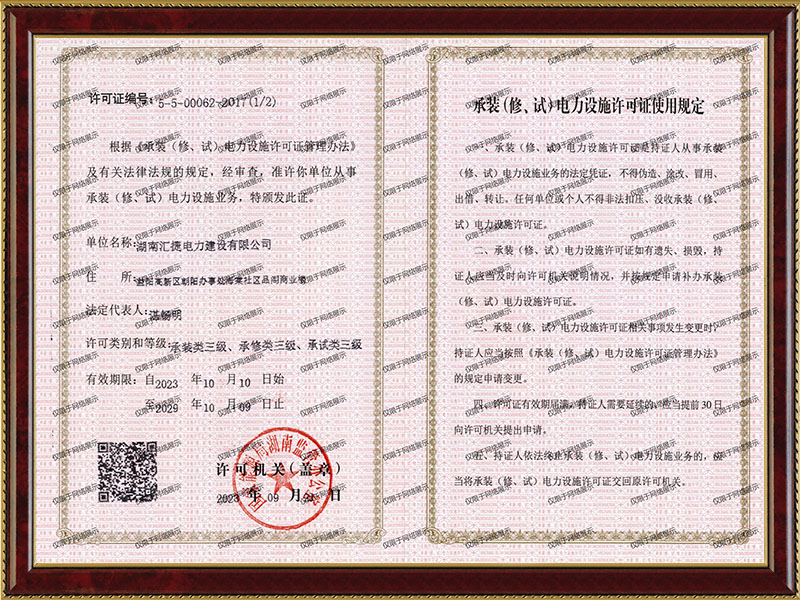 许可证编号:5-5-00062-2017(1/2)
根据《承装（修、试）电力设施许可证管理办法》
及有关法律法规的规定，经审查，准许你单位从事
承装（修、试）电力设施业务，特颁发此证。
单位名称:湖南汇捷电力建设有限公司
住 所:益阳高新区朝阳办事处海棠社区品阁商业楼
法定代表人:
许可类别和等级:承装类三级、承修类三级、承试类三级
有效期限：自2023 年10 月10 日始
至2029 年10 月09 日止
许可机关(盖章)
2023 年 09 月 日
承装(修、试)电力设施许可证使用规定
一、承装（修、试）电力设施许可证是持证人从事承装
（修、试）电力设施业务的法定凭证，不得伪造、涂改、冒用、
出借、转让。任何单位或个人不得非法扣压、没收承装（修、
试）电力设施许可证。
二、承装（修、试）电力设施许可证如有遗失、损毁，持
证人应当及时向许可机关说明情况，并按规定申请补办承装
（修、试）电力设施许可证。
三、承装（修、试）电力设施许可证相关事项发生变更时，
持证人应当按照《承装（修、试）电力设施许可证管理办法》
的规定申请变更。
四、许可证有效期届满，持证人需要延续的，应当提前30日
向许可机关提出申请。
五、持证人依法终止承装（修、试）电力设施业务的，应
当将承装（修、试）电力设施许可证交回原许可机关。
仅限于网络展示